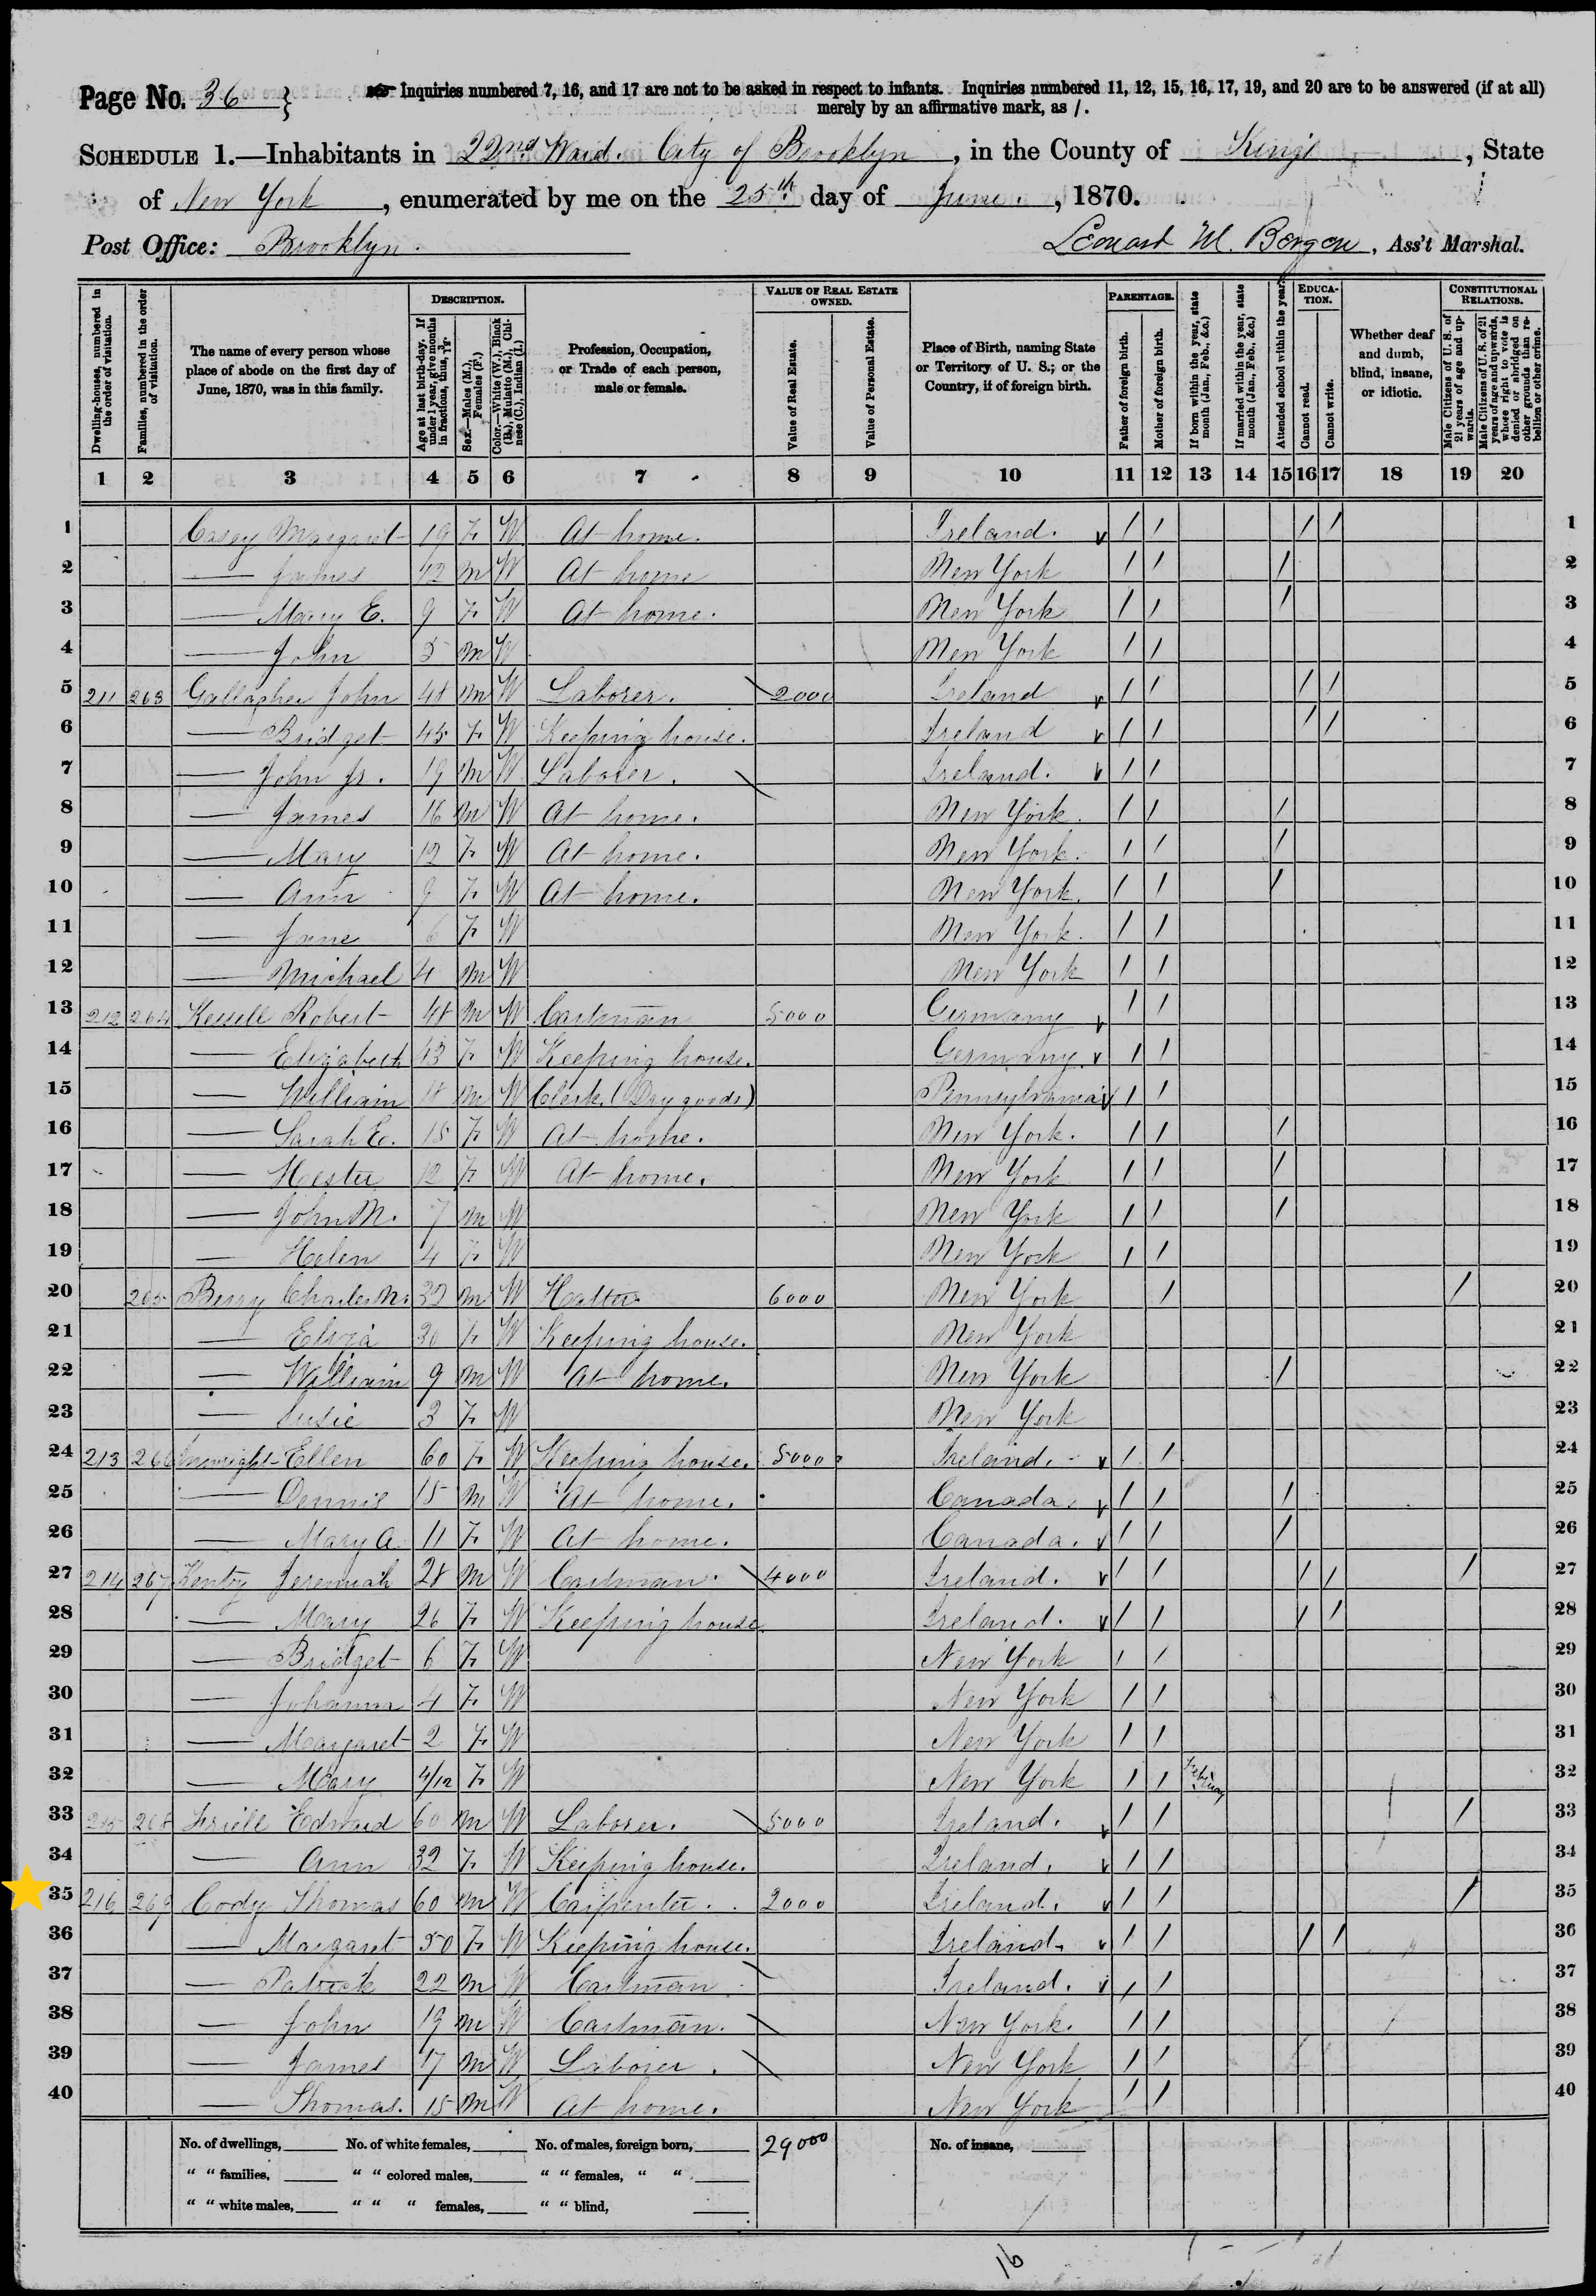 Page No. 36 } Inquiries numbered 7, 16, and 17 are not to be asked in respect to infants. Inquiries numbered 11, 12, 15, 16, 17, 19, and 20 are to be answered (if at all)
merely by an affirmative mark, as /.
SCHEDULE 1.—Inhabitants in 22nd Ward. City of Brooklyn, in the County of Kings, State
of New York, enumerated by me on the 25th day of June., 1870.
Post Office: Brooklyn. Leonard M. Bergen, Ass't Marshal.
Dwelling-houses, numbered in the order of visitation.
Families, numbered in the order of visitation.
The name of every person whose place of abode on the first day of June, 1870, was in this family.
DESCRIPTION.
Age at last birth-day. If under 1 year, give months in fractions, thus, 3/12.
Sex.—Males (M.), Females (F.)
Color.—White (W.), Black (B.), Mulatto (M.), Chinese (C.), Indian (I.)
Profession, Occupation, or Trade of each person, male or female.
VALUE OF REAL ESTATE OWNED.
Value of Real Estate.
Value of Personal Estate.
Place of Birth, naming State or Territory of U. S.; or the Country, if of foreign birth.
PARENTAGE.
Father of foreign birth.
Mother of foreign birth.
If born within the year, state month (Jan., Feb., &c.)
If married within the year, state month (Jan., Feb., &c.)
Attended school within the year.
EDUCATION.
Cannot read.
Cannot write.
Whether deaf and dumb, blind, insane, or idiotic.
CONSTITUTIONAL RELATIONS.
Male Citizens of U. S. of 21 years of age and upwards.
Male Citizens of U. S. of 21 years of age and upwards, whose right to vote is denied or abridged on other grounds than rebellion or other crime.
1 2 3 4 5 6 7 8 9 10 11 12 13 14 15 16 17 18 19 20
1 Casey Margaret 19 F W At home. Ireland. / / / / 1
2 — James 12 M W At home New York / / / 2
3 — Mary E. 9 F W At home. New York / / / 3
4 — John 5 M W New York / / 4
5 211 263 Gallagher John 48 M W Laborer. 2000 Ireland / / / / 5
6 — Bridget 45 F W Keeping house. Ireland / / / / 6
7 — John Jr. 19 M W Laborer. Ireland. / / 7
8 — James 16 M W At home. New York. / / / 8
9 — Mary 12 F W At home. New York. / / / 9
10 — Ann 9 F W At home. New York. / / / 10
11 — Jane 6 F W New York. / / 11
12 — Michael 4 M W New York / / 12
13 212 264 Kessell Robert 48 M W Cartman 5000 Germany / / 13
14 — Elizabeth 43 F W Keeping house. Germany / / 14
15 — William 18 M W Clerk (Dry goods) Pennsylvania / / 15
16 — Sarah E. 15 F W At home. New York. / / / 16
17 — Hester 12 F W At home. New York / / / 17
18 — John M. 7 M W New York / / / 18
19 — Helen 4 F W New York / / 19
20 265 Berry Charles M. 32 M W Hatter 6000 New York / / 20
21 — Eliza 30 F W Keeping house. New York 21
22 — William 9 M W At home. New York / 22
23 — Susie 3 F W New York 23
24 213 266 Ellen 60 F W Keeping house. 5000 Ireland. / / 24
25 — Dennis 15 M W At home. Canada. / / / 25
26 — Mary A. 11 F W At home. Canada. / / / 26
27 214 267 Jeremiah 28 M W Cartman. 4000 Ireland. / / / / / 27
28 — Mary 26 F W Keeping house. Ireland. / / / / 28
29 — Bridget 6 F W New York / / 29
30 — Johanna 4 F W New York / / 30
31 — Margaret 2 F W New York / / 31
32 — Mary 4/12 F W New York / / February 32
33 215 268 Friell Edward 60 M W Laborer. 5000 Ireland. / / / 33
34 — Ann 32 F W Keeping house. Ireland. / / 34
35 216 269 Cody Thomas 60 M W Carpenter. 2000 Ireland. / / / 35
36 — Margaret 50 F W Keeping house. Ireland. / / / / 36
37 — Patrick 22 M W Cartman Ireland. / / 37
38 — John 19 M W Cartman. New York. / / 38
39 — James 17 M W Laborer. New York / / 39
40 — Thomas. 15 M W At home. New York / / 40
No. of dwellings, No. of white females, No. of males, foreign born, 29000 No. of insane,
" " families, " " colored males, " " females, " "
" " white males, " " " females, " " blind,
16